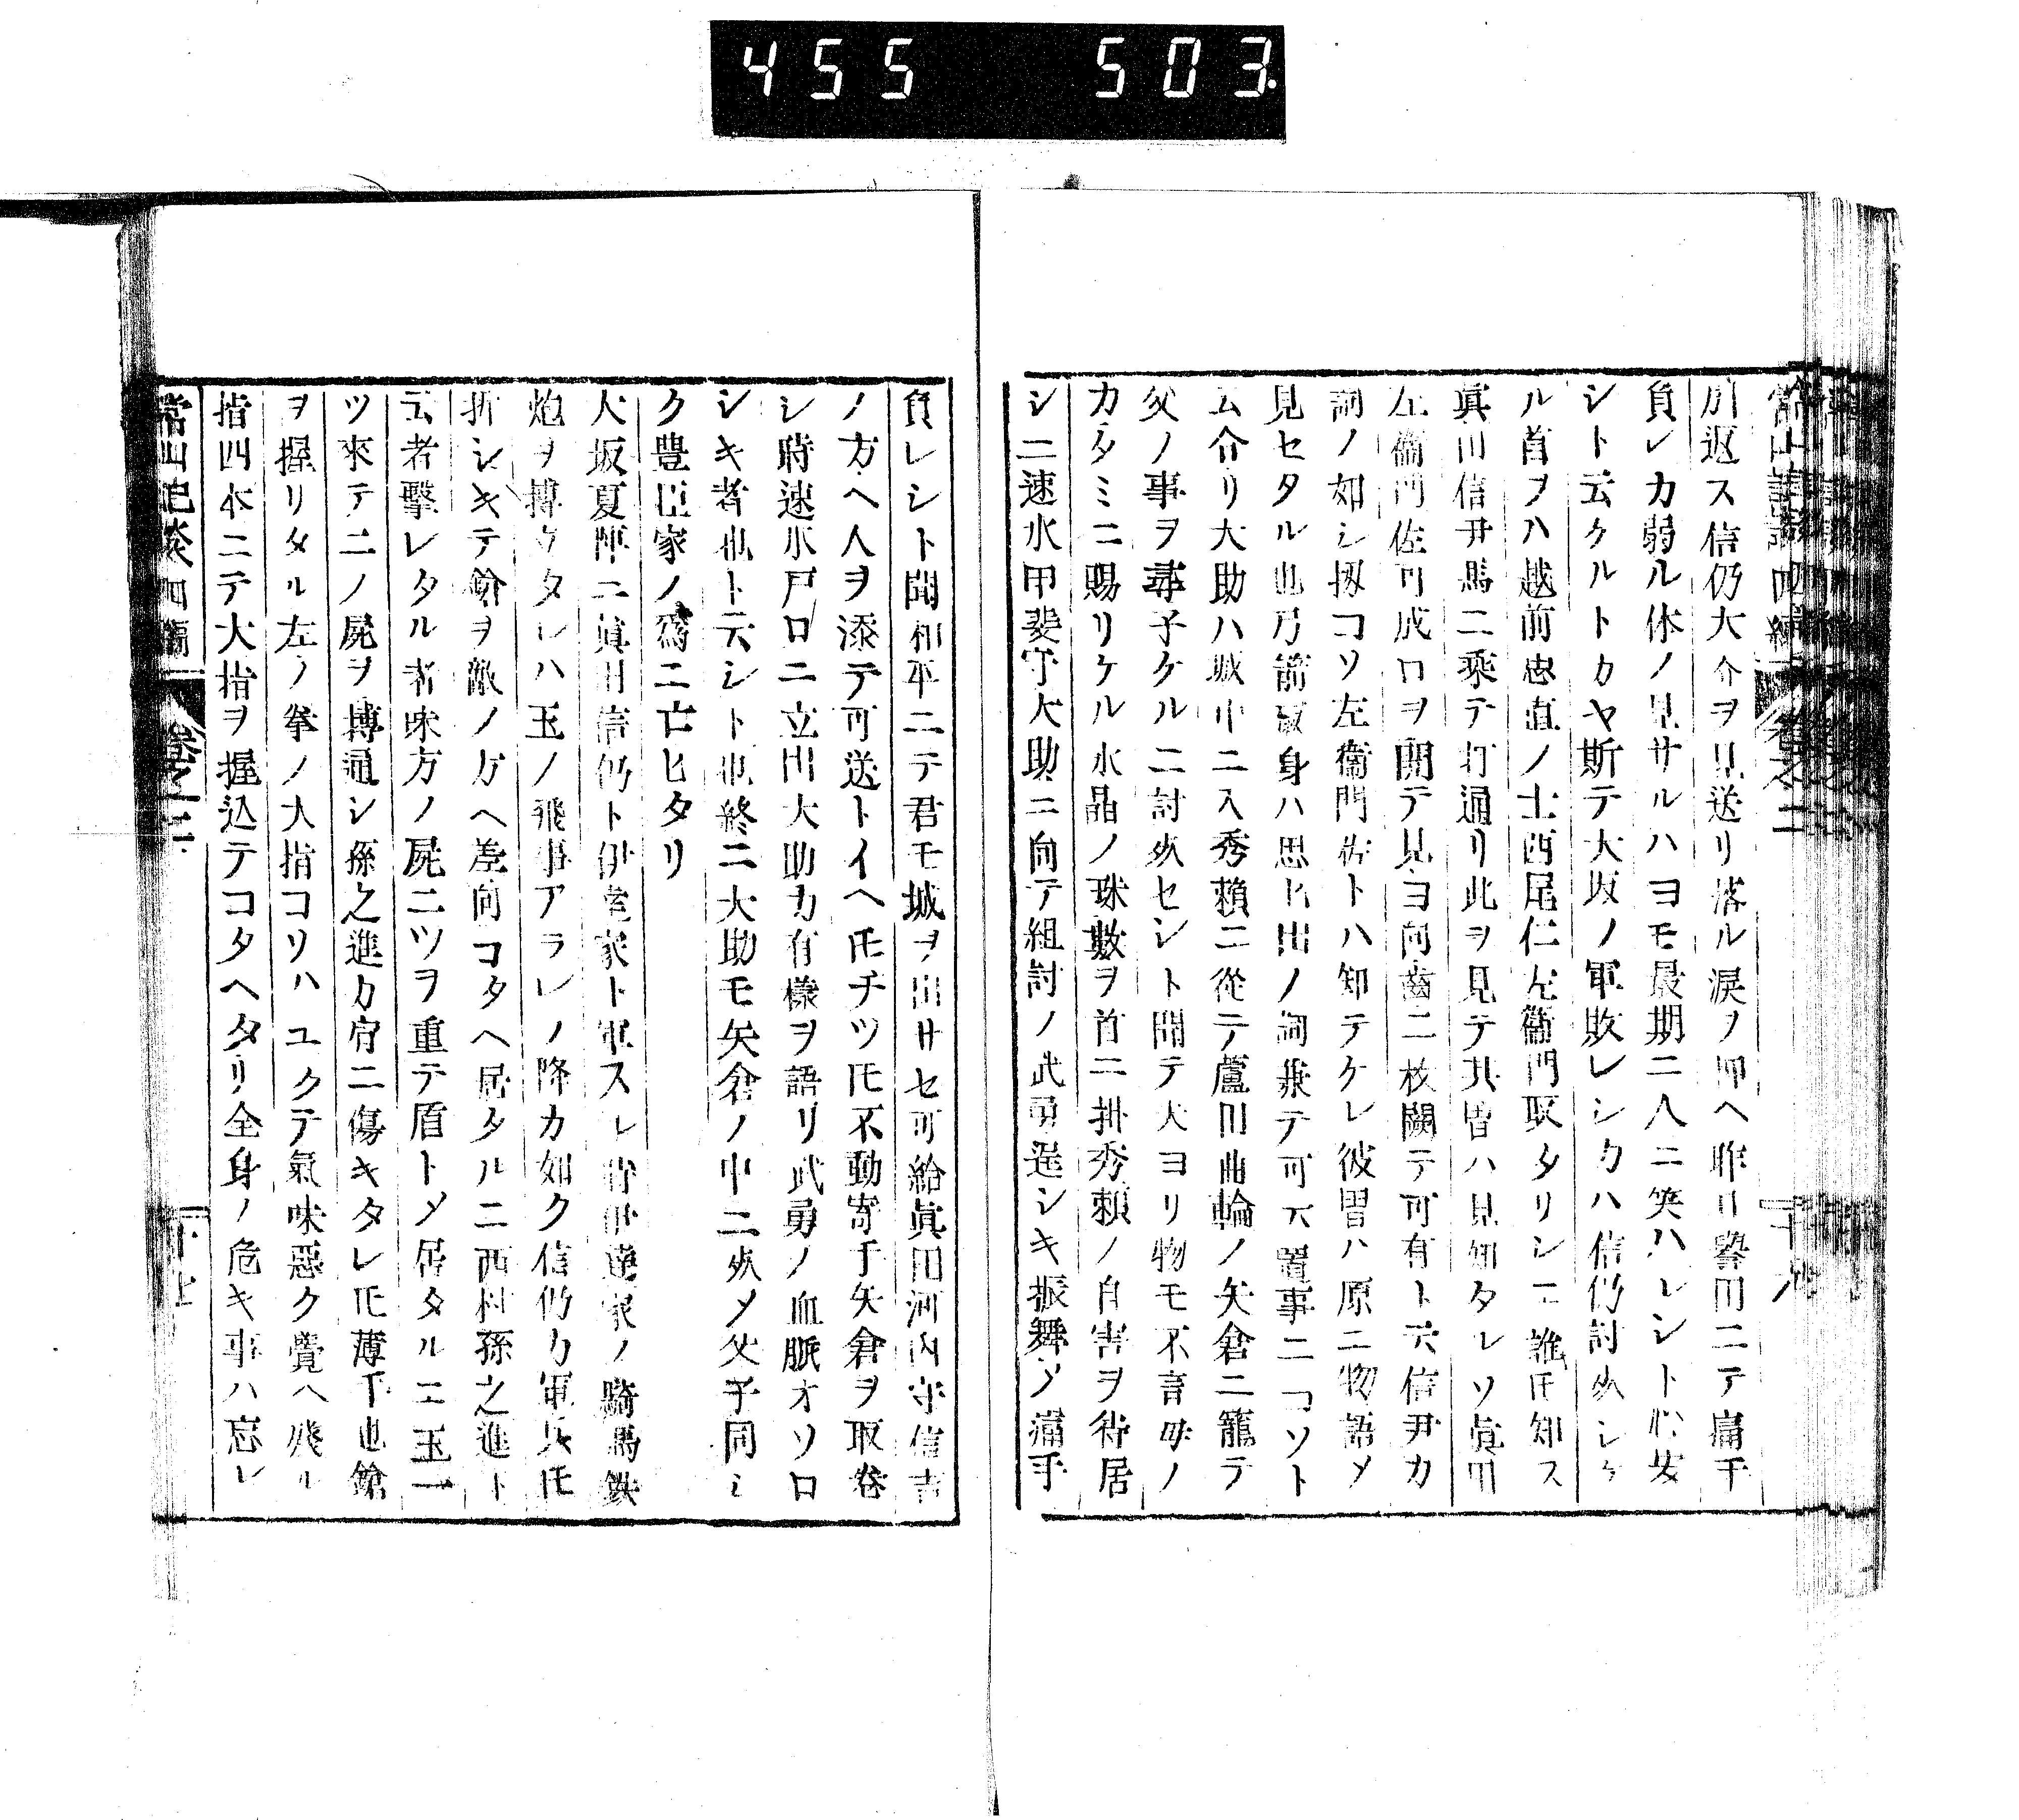 455 503
引返ス信仍大介ヲ見送リ落ル涙ヲ押ヘ昨日譽田ニテ痛手
負レカ弱ル体ノ見サルハヨモ最期ニ人ニ笑ハレシト心安
シト云クルトカヤ斯テ大坂ノ軍敗レシカハ信仍討死シケ
ル首ヲハ越前忠直ノ士西尾仁左衞門取タリシニ誰𪜈知ス
眞田信尹馬ニ乘テ打通リ此ヲ見テ其冑ハ見知タレソ眞田
左衞門佐可成口ヲ開テ見ヨ向齒二枚闕テ可有ト云信尹カ
詞ノ如シ扨コソ左衞門佐トハ知テケレ彼冑ハ原ニ物語メ
見セタル也弓箭取身ハ思ヒ出ノ詞兼テ可云置事ニコソト
云介リ大助ハ城中ニ入秀賴ニ從テ蘆田曲輪ノ矢倉ニ籠テ
父ノ事ヲ尋子ケルニ討死セシト聞テ夫ヨリ物モ不言母ノ
カタミニ賜リケル水晶ノ珠數ヲ首ニ掛秀賴ノ自害ヲ待居
シニ速水甲斐守大助ニ向テ組討ノ武勇逞シキ振舞メ痛手
負レシト聞和平ニテ君モ城ヲ出サセ可給眞田河内守信吉
ノ方ヘ人ヲ添テ可送トイヘ𪜈チツ𪜈不動寄手矢倉ヲ取卷
シ時速水戸口ニ立出大助カ有樣ヲ語リ武勇ノ血脈オソロ
シキ者也ト云シト也終ニ大助モ矢倉ノ中ニ死メ父子同シ
ク豊臣家ノ爲ニ亡ヒタリ
大坂夏陣ニ眞田信仍ト伊達家ト軍スレ時伊達家ノ騎馬鉄
炮ヲ搏立タレハ玉ノ飛事アラレノ降カ如ク信仍カ軍兵𪜈
折シキテ鎗ヲ敵ノ方ヘ差向コタヘ居タルニ西村孫之進ト
云者擊レタル者味方ノ屍二ツヲ重テ盾トメ居タルニ玉一
ツ來テ二ノ屍ヲ搏通シ孫之進カ肩ニ傷キタレ𪜈薄手也鎗
ヲ握リタル左ノ拳ノ大指コリハユクテ氣味惡ク覺ヘ殘ル
指四本ニテ大指ヲ握込テコタヘタリ全身ノ危キ事ハ忘レ
常山紀談四編 卷之二